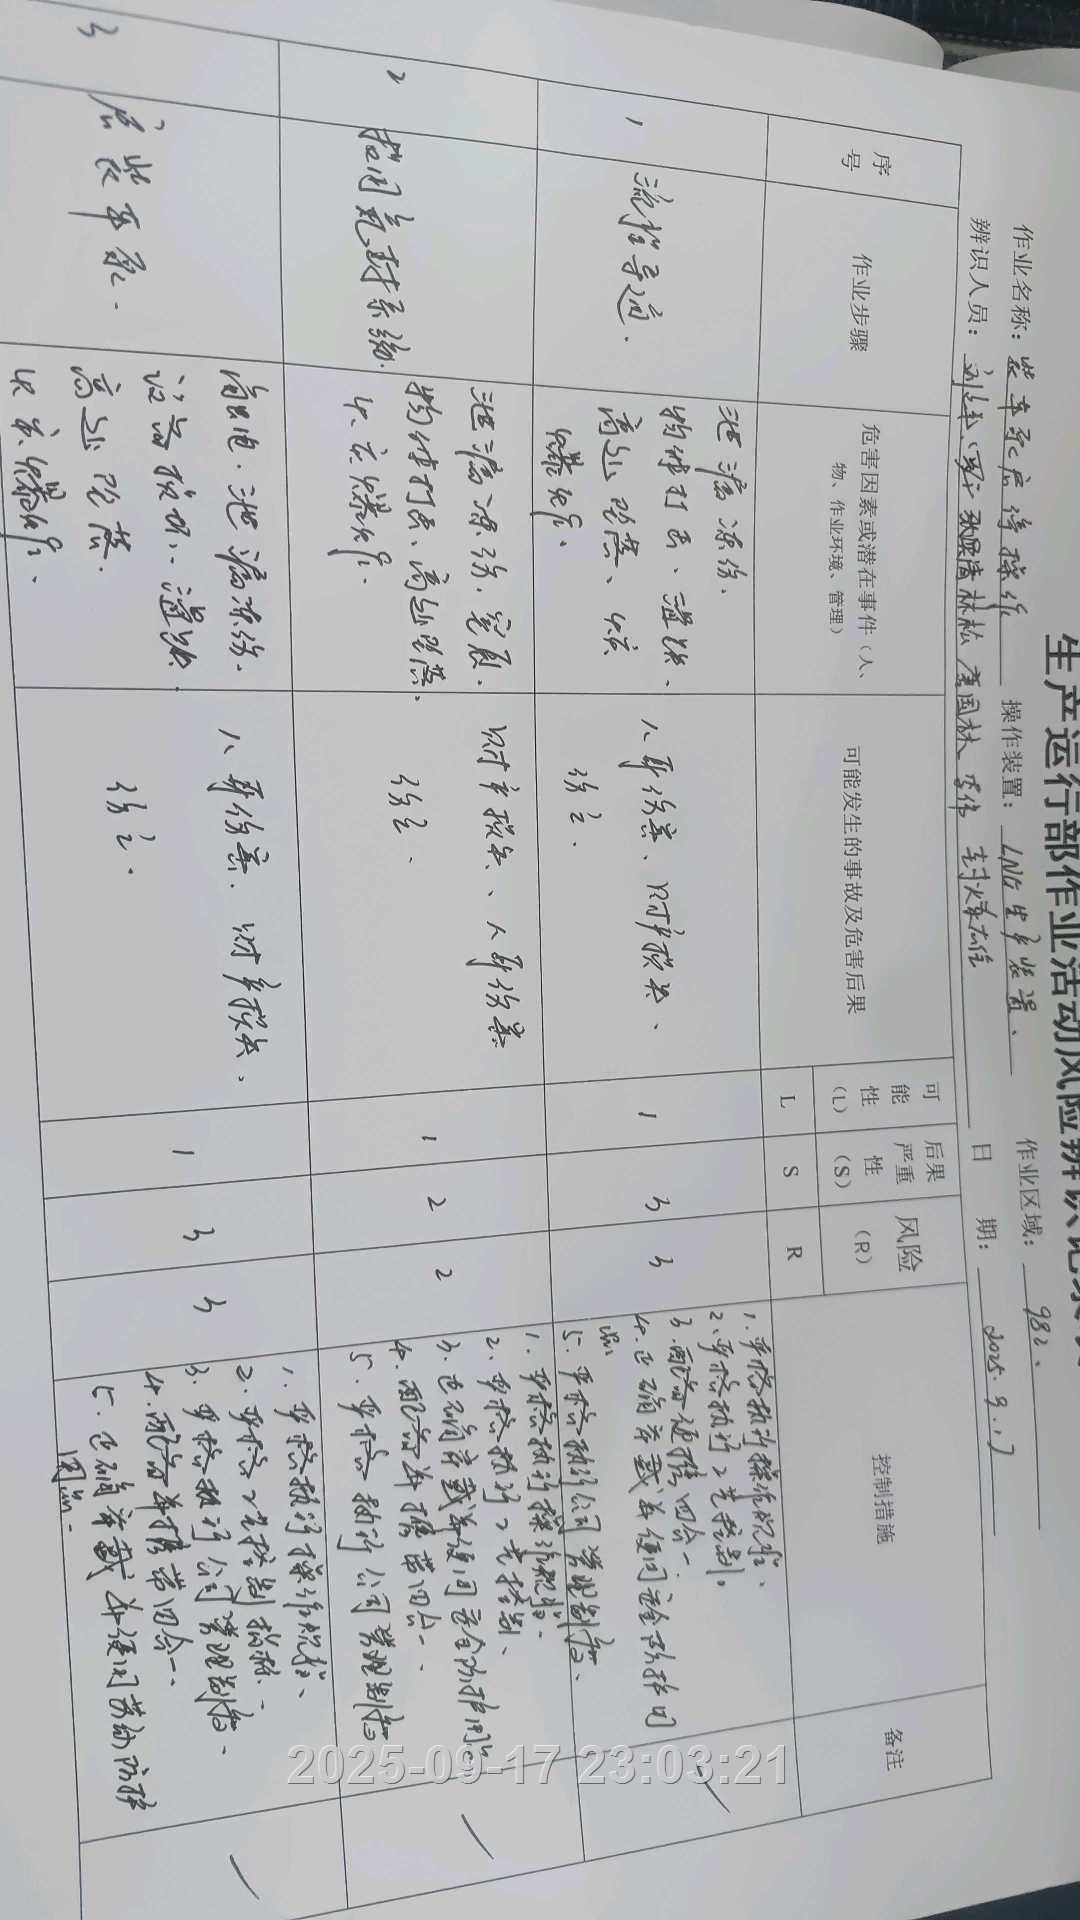 生产运行部作业活动风险辨识记录
作业名称：装车泵启停操作 操作装置：LNG生产装置、 作业区域：982、
辨识人员： 林松 李伟 日 期：2025.9.17
序号 作业步骤 危害因素或潜在事件（人、物、作业环境、管理） 可能发生的事故及危害后果 可能性（L） 后果严重性（S） 风险（R） 控制措施 备注
L S R
1 流程导通.
泄漏冻伤.
物体打击、灌肠、
高处坠落、火灾
爆炸、
人身伤害、财产损失、
伤亡.
1 3 3
1. 严格执行操作规程、
2. 严格执行工艺控制。
3. 配备便携四合一.
4. 正确穿戴并使用安全防护用
品
5. 严格执行公司管理制度、
2 投用氮封系统.
泄漏、冻伤.窒息.
物体打击、高处坠落.
火灾爆炸.
财产损失、人身伤害
伤亡.
1 2 2
1. 严格执行操作规程.
2. 严格执行工艺控制、
3. 正确穿戴并使用安全防护用品
4. 配备并携带四合一.
5. 严格执行公司管理制度
3 启装车泵.
触电.泄漏冻伤.
设备损坏、
高处坠落.
火灾爆炸、
人身伤害.财产损失、
伤亡.
1 3 3
1. 严格执行操作规程、
2. 严格工艺控制指标.
3. 严格执行公司管理制度.
4. 配备并携带四合一.
5. 正确穿戴并使用劳动防护
用品.
2025-09-17 23:03:21